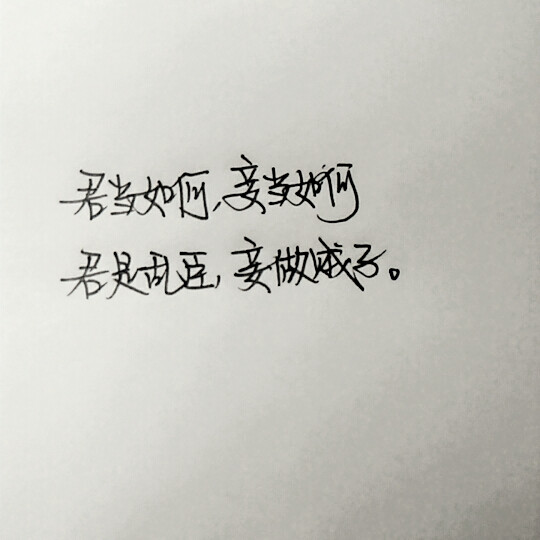 君当如何,妾当如何
君是乱臣,妾做贼子。